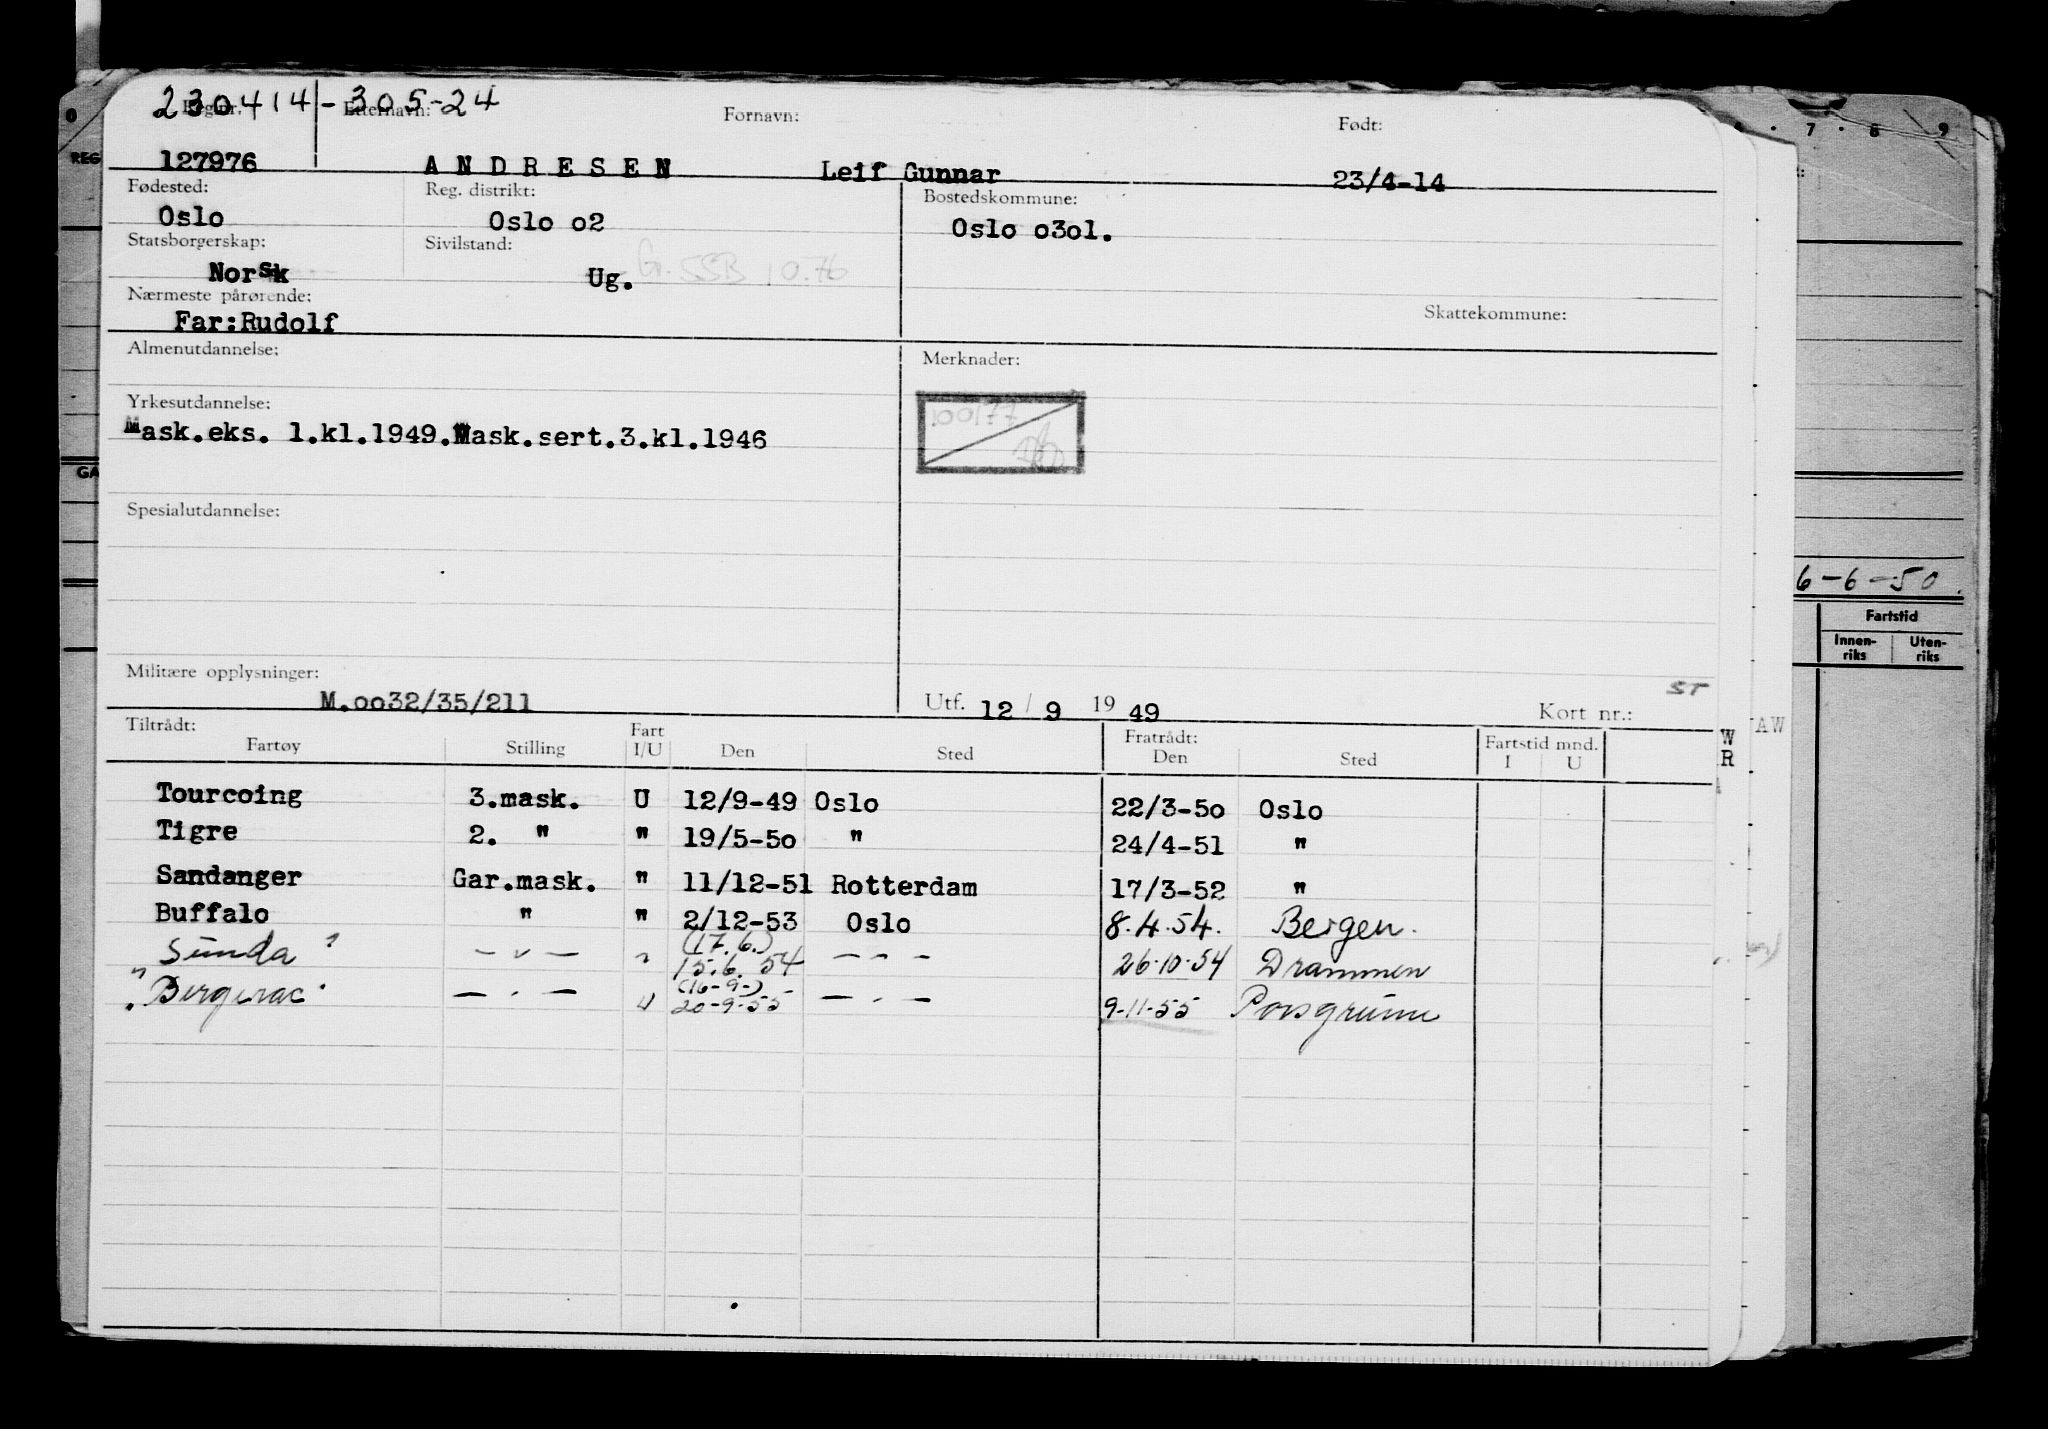 230414-305-24
Reg.nr. Etternavn: Fornavn: Født:
127976 ANDRESEN Leif Gunnar 23/4-14
Fødested: Reg. distrikt: Bostedskommune:
Oslo Oslo o2 Oslo o3o1.
Statsborgerskap: Sivilstand:
Norsk Ug. Gr. SSB 10.76
Nærmeste pårørende: Skattekommune:
Far:Rudolf
Almenutdannelse: Merknader:
100177
Yrkesutdannelse:
Mask.eks. 1.kl.1949.Mask.sert.3.kl.1946
Spesialutdannelse:
Militære opplysninger:
M.oo32/35/211 Utf. 12 / 9 19 49 Kort nr.: ST
Tiltrådt: Fratrådt:
Fartøy Stilling Fart I/U Den Sted Den Sted Fartstid mnd. I U
Tourcoing 3.mask. U 12/9-49 Oslo 22/3-5o Oslo
Tigre 2. " " 19/5-5o " 24/4-51 "
Sandanger Gar.mask. " 11/12-51 Rotterdam 17/3-52 "
Buffalo " " 2/12-53 Oslo 8.4.54. Bergen.
(17.6.)
Sunda " — " — " 15.6.54 — " — 26.10.54 Drammen
(16-9-)
"Bergerac" — " — " 20-9-55 — " — 9-11-55 Porsgrunn
0 7 8 9
REG
GA
6-6-50.
Fartstid
Innen-riks Uten-riks
W
R
AW